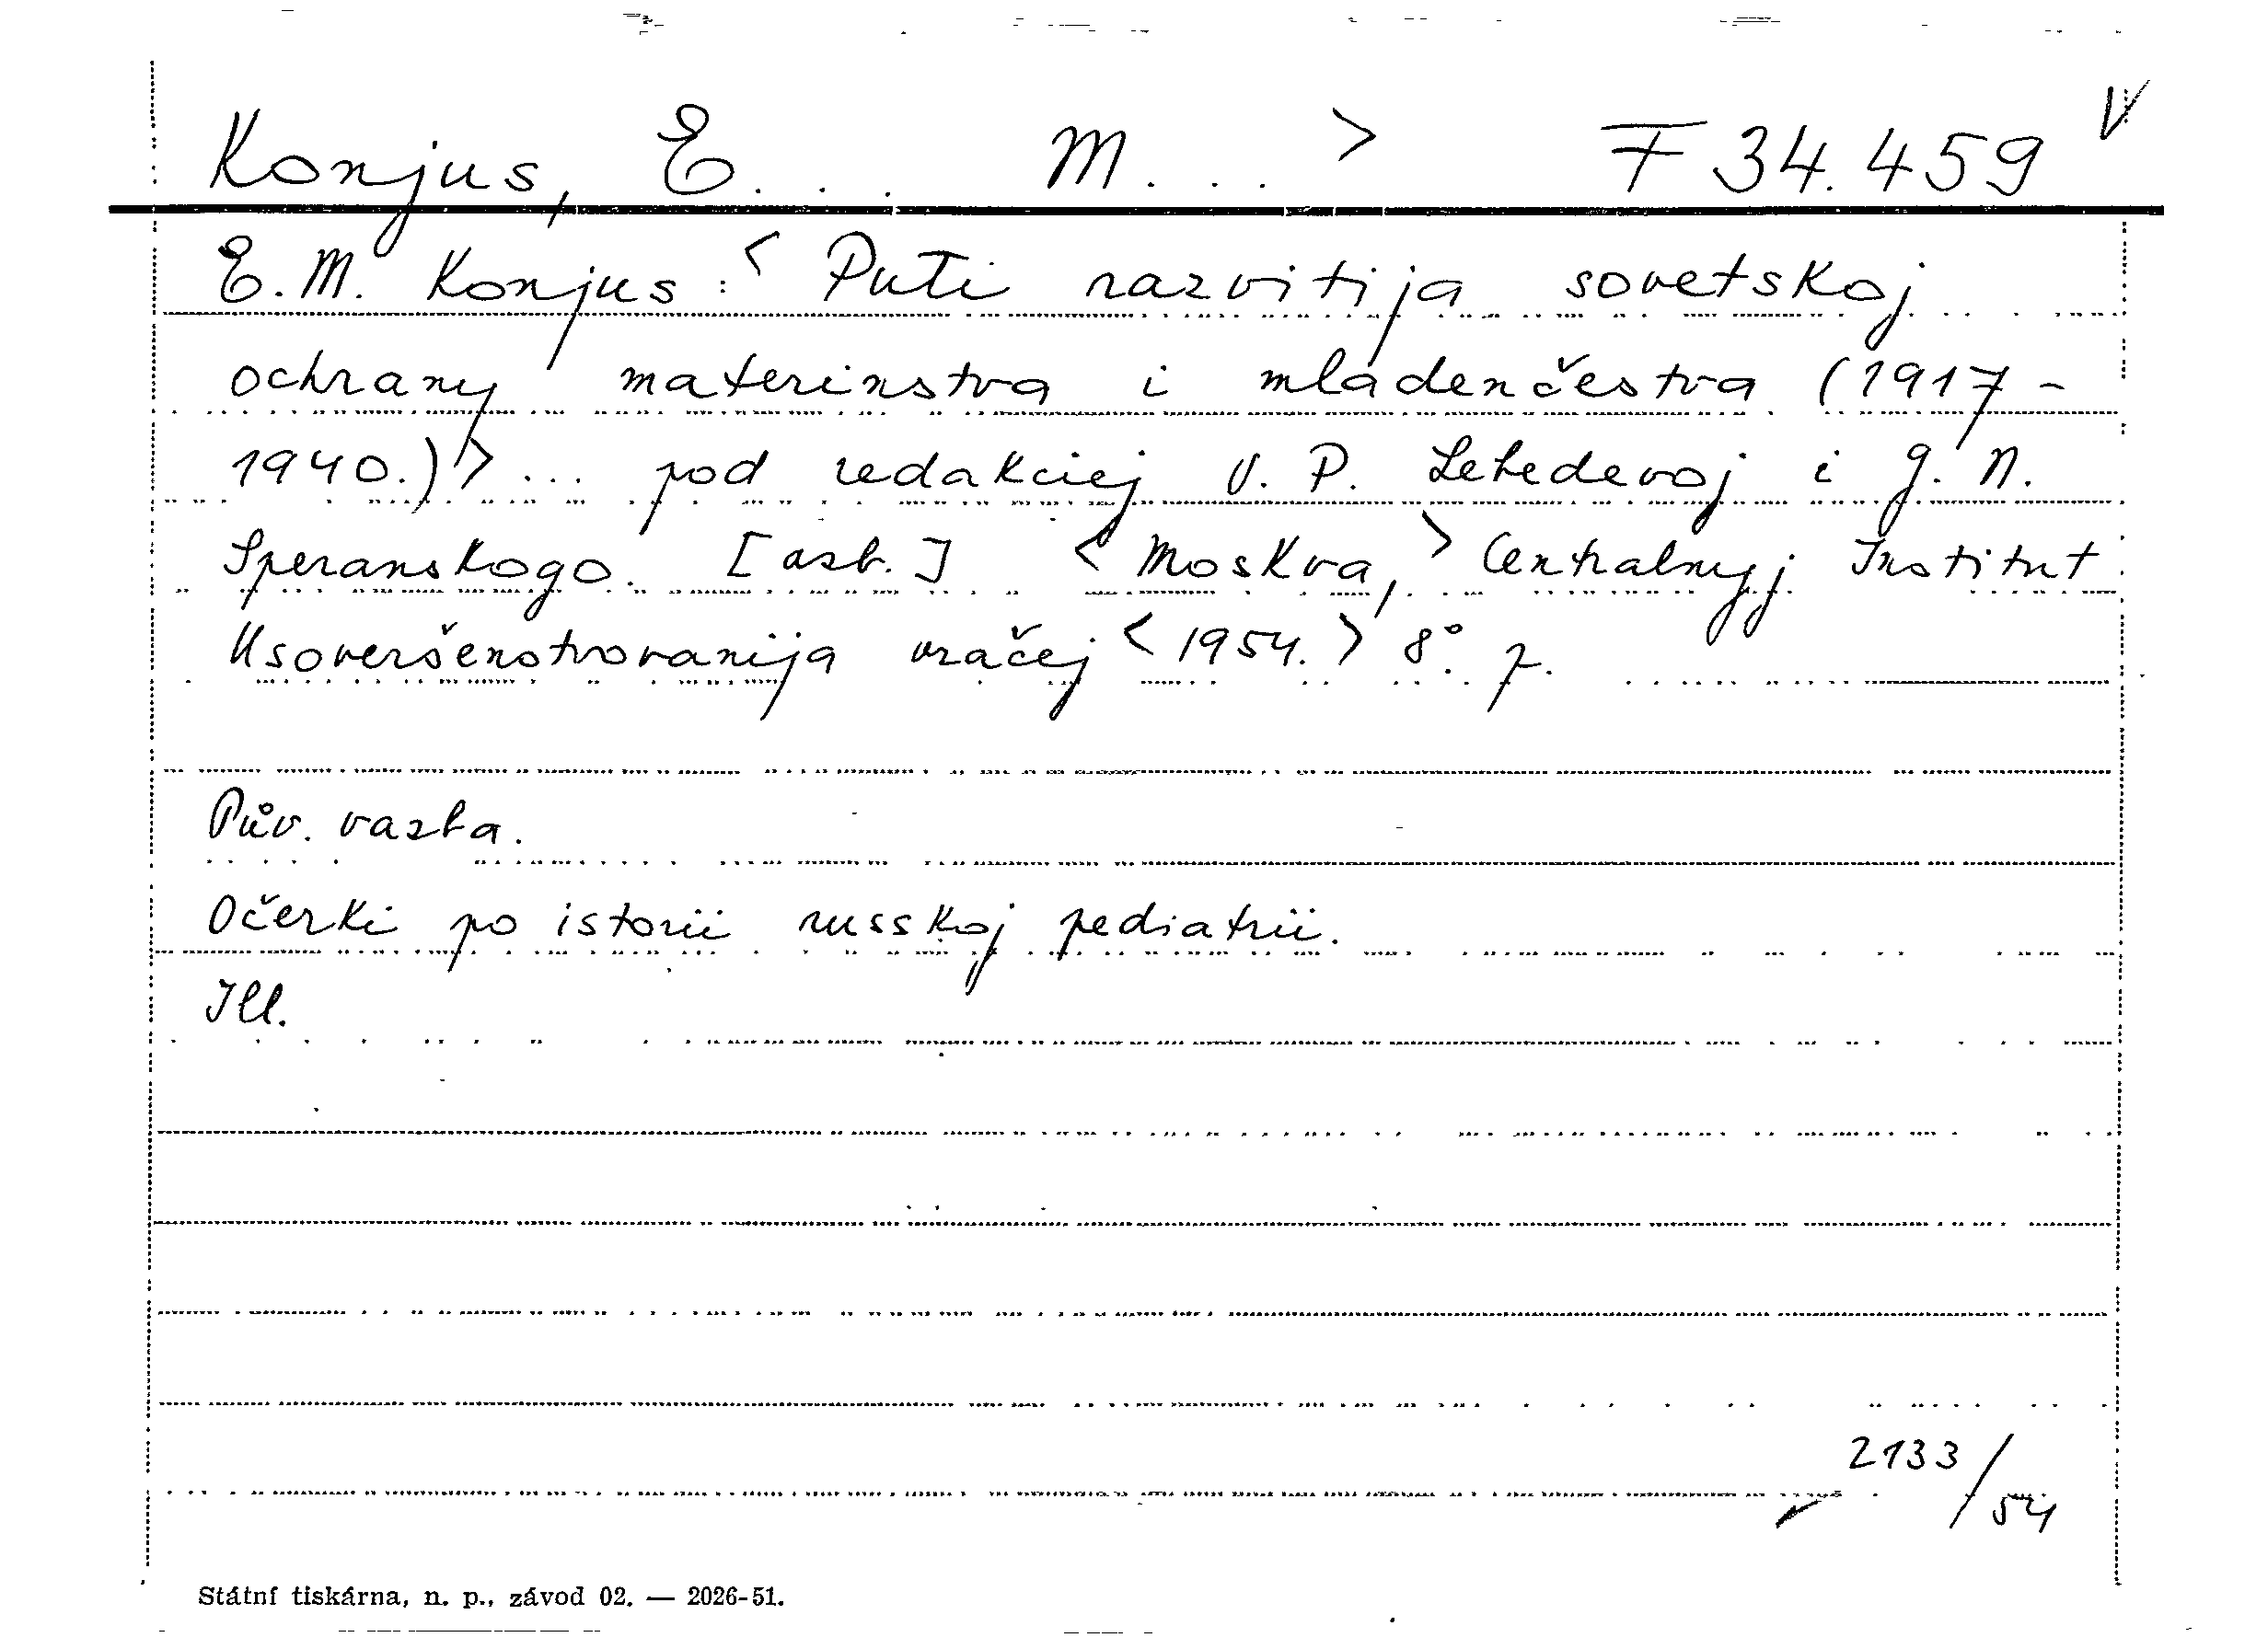 Konjus, E... M...> F 34.459 V
E.M. Konjus: <Puti razvitija sovetskoj
ochrany materinstva i mladenčestva (1917-
1940.)> ... pod redakciej V. P. Lebedevoj i G. N.
Speranskogo. [azb.] <Moskva,> Centralnyj Institut
Usoveršenstvovanija vračej <1954.> 8°. 7.
Pův. vazba.
Očerki po istorii russkoj pediatrii.
Ill.
2133/54
Státní tiskárna, n. p., závod 02. — 2026-51.